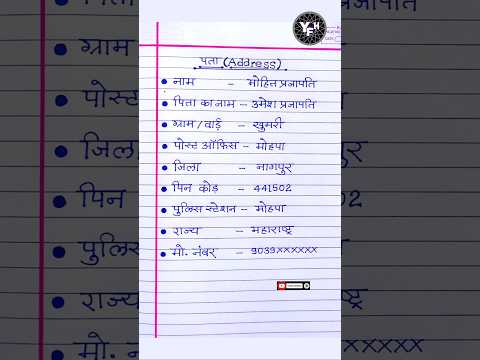 पता (Address)
नाम – मोहित प्रजापति
पिता का नाम – उमेश प्रजापति
ग्राम/वार्ड – खुमरी
पोस्ट ऑफिस – मोहपा
जिला – नागपुर
पिन कोड – 441502
पुलिस स्टेशन – मोहपा
राज्य – महाराष्ट्र
मो. नंबर – 9039xxxxxx